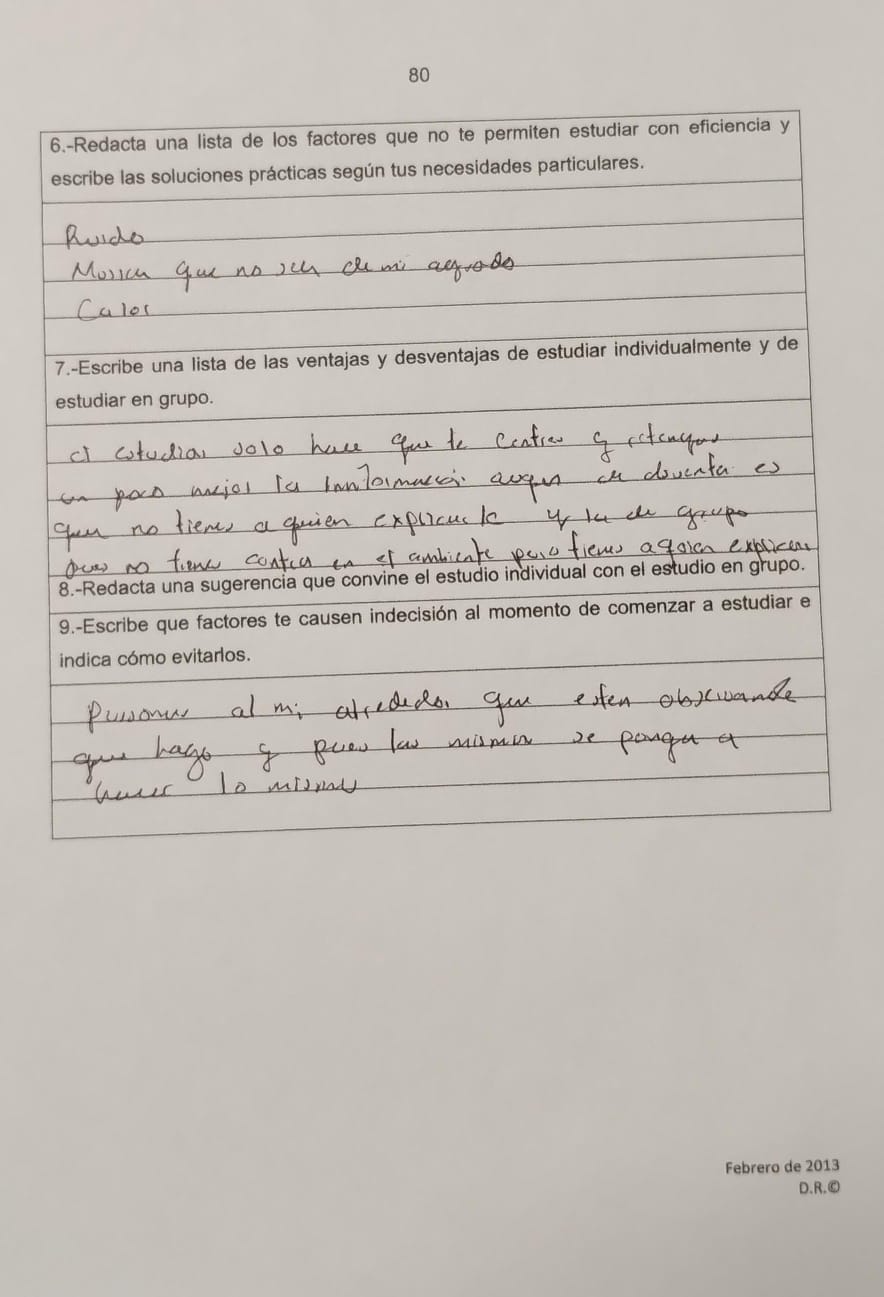 80
6.-Redacta una lista de los factores que no te permiten estudiar con eficiencia y
escribe las soluciones prácticas según tus necesidades particulares.
Ruido
Musica que no sea de mi agrado
Calor
7.-Escribe una lista de las ventajas y desventajas de estudiar individualmente y de
estudiar en grupo.
el estudiar solo hace que te centres y retengas
un poco mejor la
que no tienes a quien explicarle y la de grupo
pues no tienes en el ambiente pero tienes a quien explicar
8.-Redacta una sugerencia que convine el estudio individual con el estudio en grupo.
9.-Escribe que factores te causen indecisión al momento de comenzar a estudiar e
indica cómo evitarlos.
Personas al mi alrededor que esten observando
que hago y pues las misma se ponga a
hacer lo mismo
Febrero de 2013
D.R.©